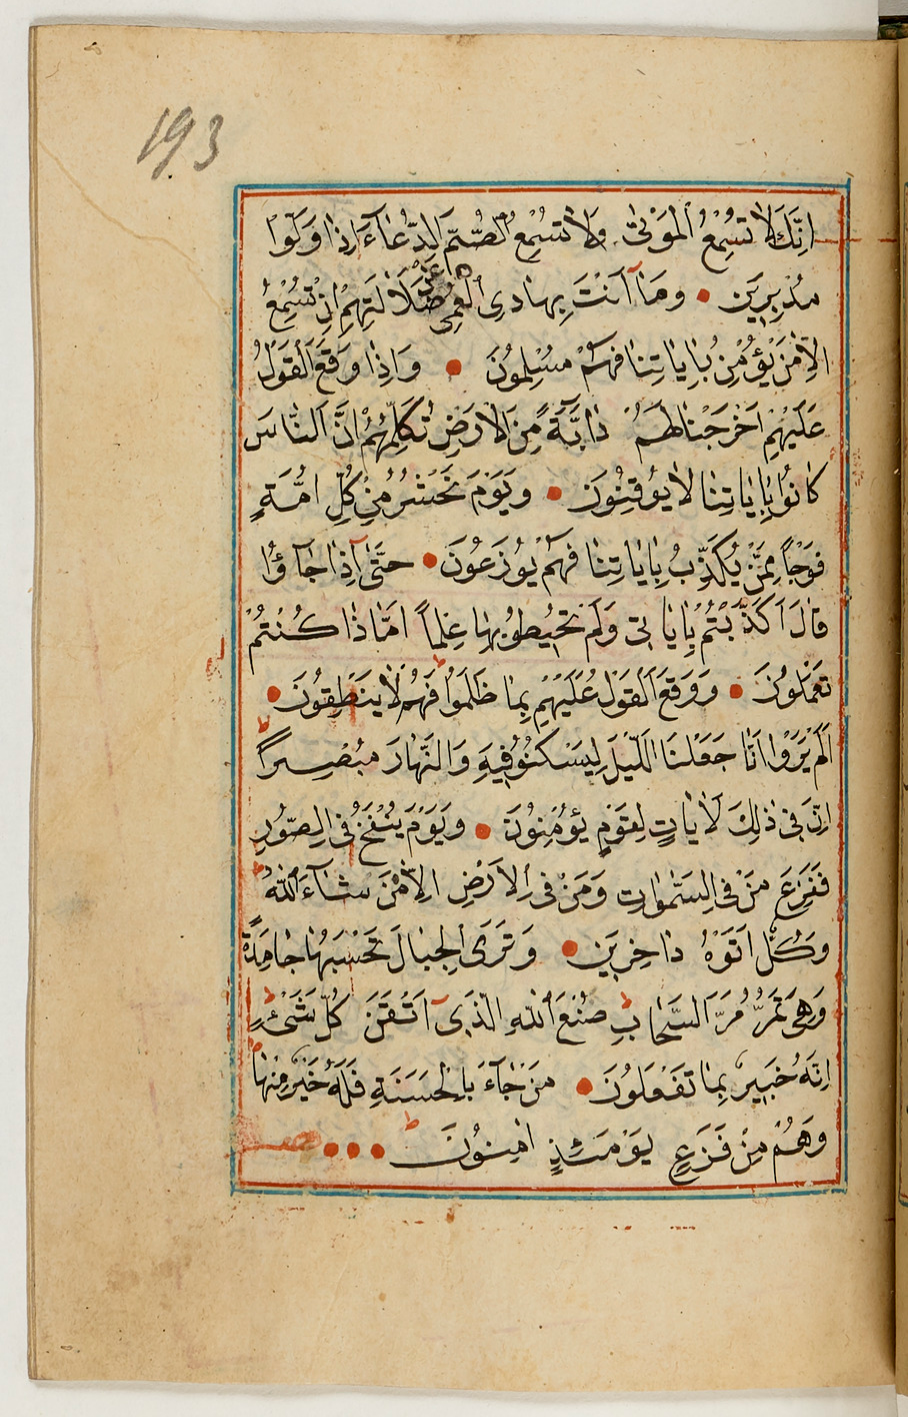 193
اِنَّكَ لَا تُسْمِعُ الْمَوْتٰى وَلَا تُسْمِعُ الصُّمَّ الدُّعَاۤءَ اِذَا وَلَّوْا
مُدْبِرِيَن وَمَاۤ اَنْتَ بِهَادِى الْعُمْىِ عَنْ ضَلَالَتِهِمْ اِنْ تُسْمِعُ
اِلَّا مَنْ يُؤْمِنُ بِاٰيَاتِنَا فَهُمْ مُسْلِمُونَ وَاِذَا وَقَعَ الْقَوْلُ
عَلَيْهِمْ اَخْرَجْنَا لَهُمْ دَاۤبَّةً مِنَ الْاَرْضِ تُكَلِّمُهُمْ اَنَّ النَّاسَ
كَانُوا بِاٰيَاتِنَا لَا يُوقِنُونَ وَيَوْمَ نَحْشُرُ مِنْ كُلِّ اُمَّةٍ
فَوْجًا مِمَّنْ يُكَذِّبُ بِاٰيَاتِنَا فَهُمْ يُوزَعُونَ حَتّٰىۤ اِذَا جَاۤؤُا
قَالَ اَكَذَّبْتُمْ بِاٰيَاتِى وَلَمْ تُحِيطُوا بِهَا عِلْمًا اَمَّاذَا كُنْتُمْ
تَعْمَلُونَ وَوَقَعَ الْقَوْلُ عَلَيْهِمْ بِمَا ظَلَمُوا فَهُمْ لَا يَنْطِقُونَ
اَلَمْ يَرَوْا اَنَّا جَعَلْنَا الَّيْلَ لِيَسْكُنُوا فِيهِ وَالنَّهَارَ مُبْصِرًا
اِنَّ فِى ذٰلِكَ لَاٰيَاتٍ لِقَوْمٍ يُؤْمِنُونَ وَيَوْمَ يُنْفَخُ فِى الصُّورِ
فَفَزِعَ مَنْ فِى السَّمٰوَاتِ وَمَنْ فِى الْاَرْضِ اِلَّا مَنْ شَاۤءَ اللّٰهُ
وَكُلٌّ اَتَوْهُ دَاخِرِينَ وَتَرَى الْجِبَالَ تَحْسَبُهَا جَامِدَةً
وَهِىَ تَمُرُّ مَرَّ السَّحَابِ صُنْعَ اللّٰهِ الَّذِىۤ اَتْقَنَ كُلَّ شَىْءٍ
اِنَّهُ خَبِيرٌ بِمَا تَفْعَلُونَ مَنْ جَاۤءَ بِالْحَسَنَةِ فَلَهُ خَيْرٌ مِنْهَا
وَهُمْ مِنْ فَزَعٍ يَوْمَئِذٍ اٰمِنُونَ